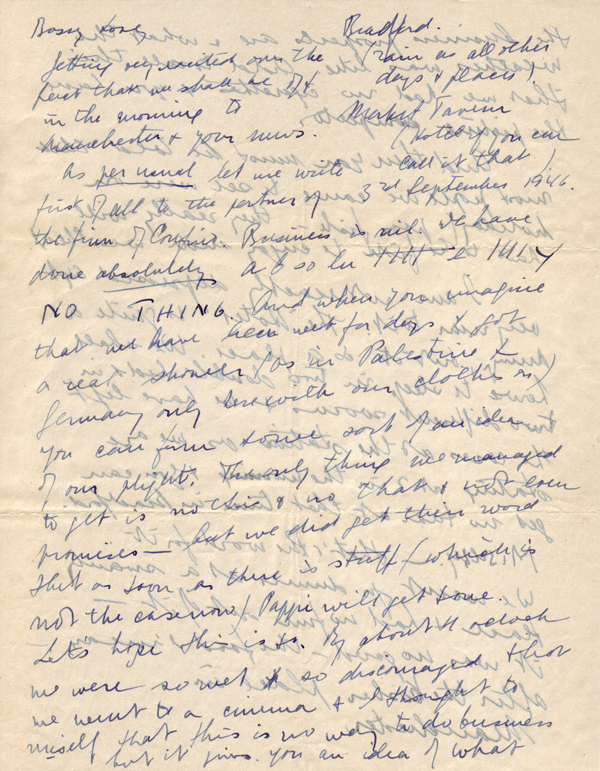 Bossy Love
Bradford.
(rain as all other
days & places!
Market Tavern
(hotel if you can
call it that!
3rd September, 1946.
Getting very excited over the
fact that we shall be off
in the morning to
Manchester & your news.
As per usual let me write
first of all to the partner of
the firm of Confina. Business is nil. We have
done absolutely, absolu TTT E IIILY
NO THING. And when you imagine
that we have been wet for days & got
a real shower (as in Palestine &
Germany only herewith our clothes on)
you can form some sort of an idea
of our plight. The only thing we managed
to get is no this & no that & not even
promises — but we did get their word
that as soon as there is stuff (which is
not the case now) Pappi will get some.
Let's hope this is so. By about 4 oclock
we were so wet & so discouraged & that
we went to a cinema & I thought to
myself that this is no way to do business
but it gives you an idea of what